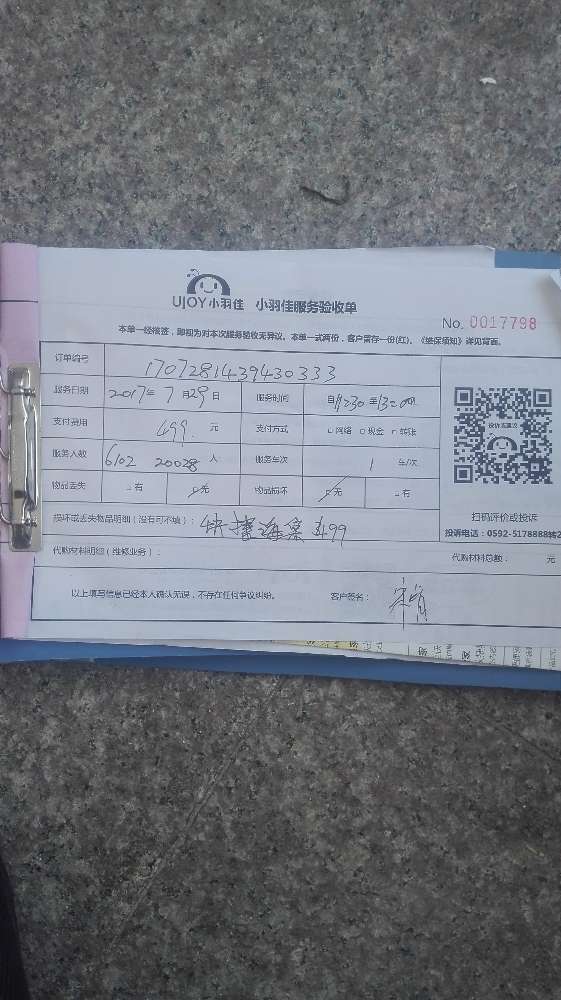 UJOY小羽佳 小羽佳服务验收单
No. 0017798
本单一经接签,即视为对本次服务验收无异议。本单一式两份,客户留存一份(红)。《维保须知》详见背面。
订单编号 1707281439430333
服务日期 2017年7月29日 服务时间
支付费用 499. 元 支付方式 网络 现金 转账
服务人数 6102 20028 人 服务车次 1 车/次
物品丢失 有 无 物品损坏 无 有
投诉或建议
扫码评价或投诉
投诉电话:0592-5178888转2
损坏或丢失物品明细(没有可不填): 499
代购材料明细(维修业务): 代购材料总额: 元
以上填写信息已经本人确认无误,不存在任何争议纠纷。 客户签名: